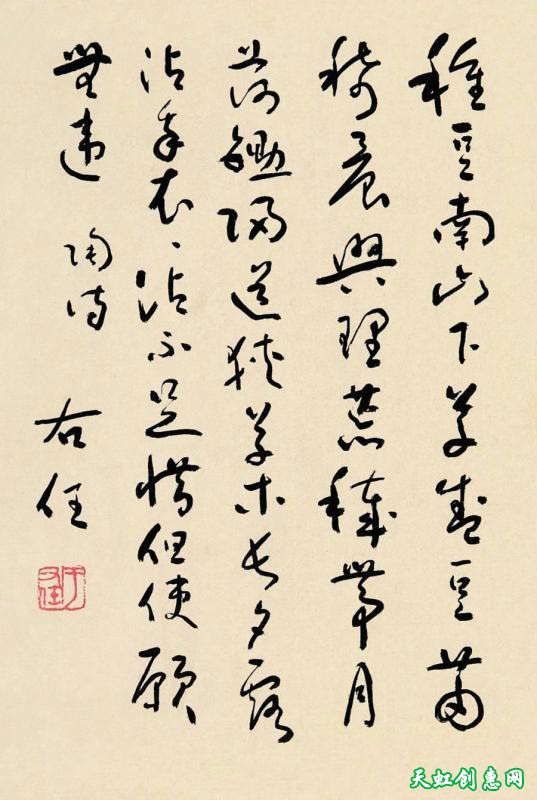 種豆南山下草盛豆苗
稀晨興理荒穢帶月
荷鋤歸道狹草木長夕露
沾我衣、沾不足惜但使願
無違 陶詩 右任
右任于
天虹创惠网